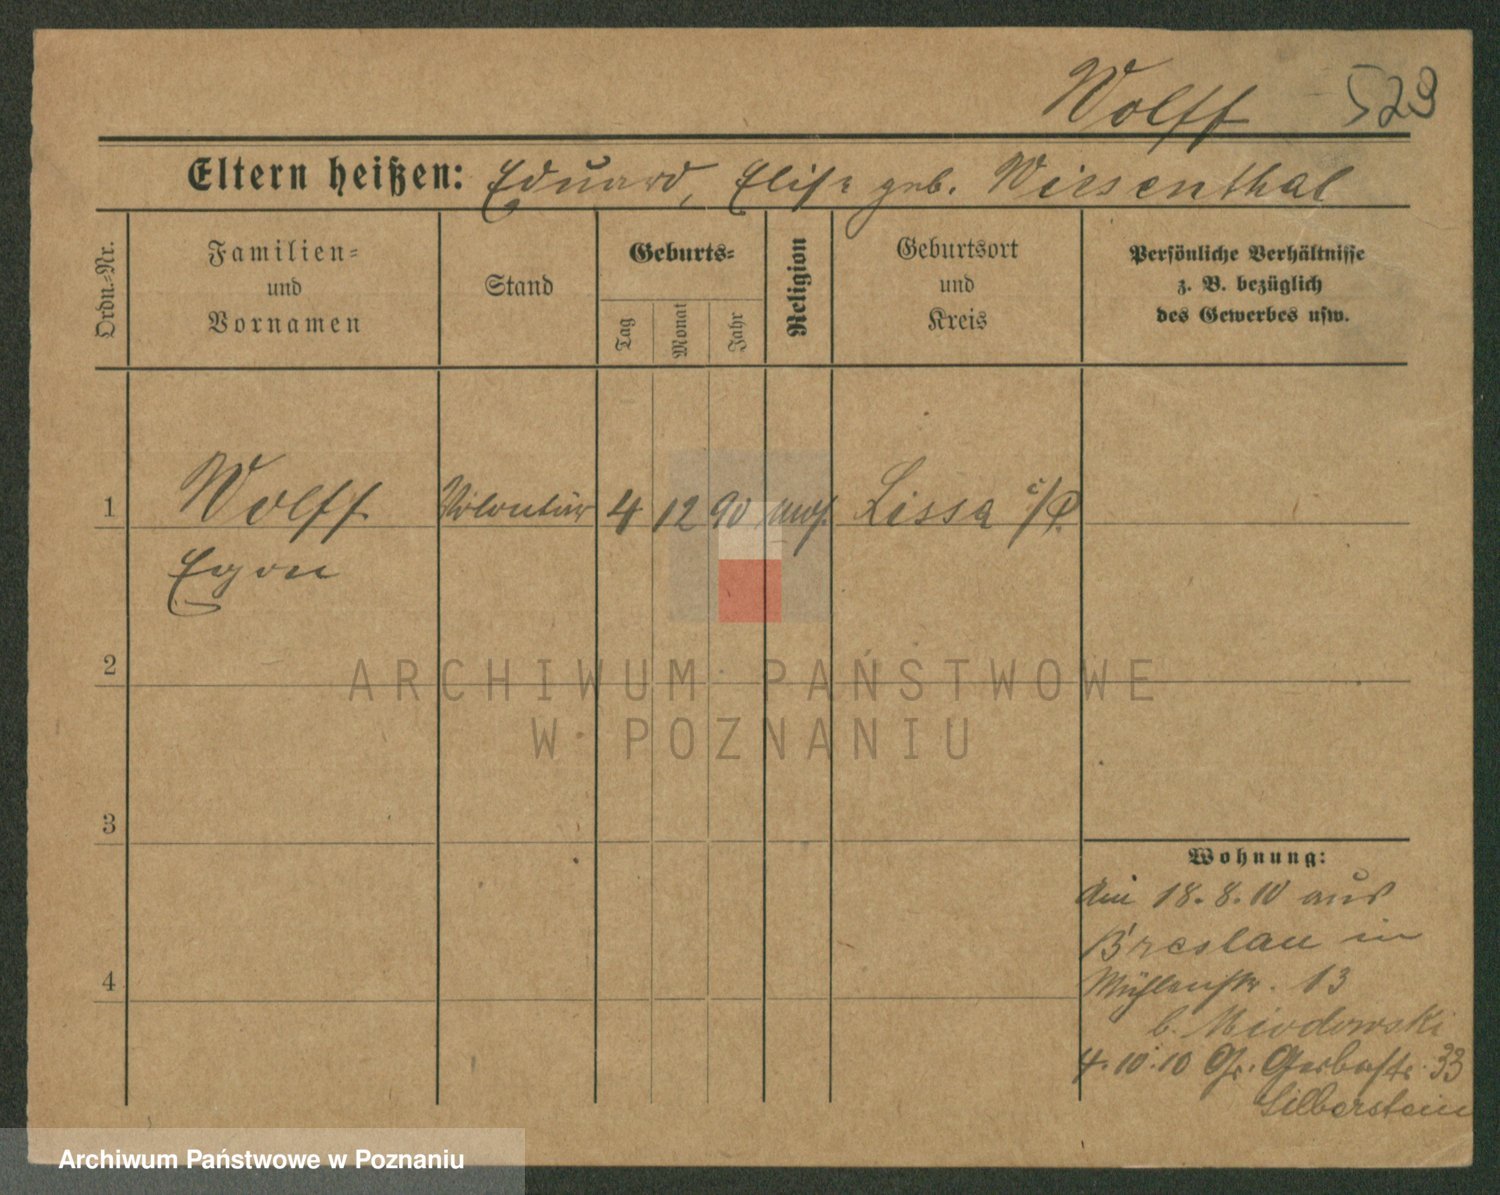 Wolff 529
Eltern heißen: Eduard, Elise geb. Wiesenthal
Ordn.-Nr.
Familien-
und
Vornamen
Stand
Geburts-
Tag
Monat
Jahr
Religion
Geburtsort
und
Kreis
Persönliche Verhältnisse
z. B. bezüglich
des Gewerbes usw.
1 Wolff Volontär 4 12 90 mos. Lissa i/P.
Egon
2
ARCHIWUM PAŃSTWOWE
W POZNANIU
3
Wohnung:
am 18.8.10 aus
Breslau in
4 Mühlenstr. 13
b. Miodowski
4.10.10 Gr. Gerberstr. 33
Silberstein
Archiwum Państwowe w Poznaniu